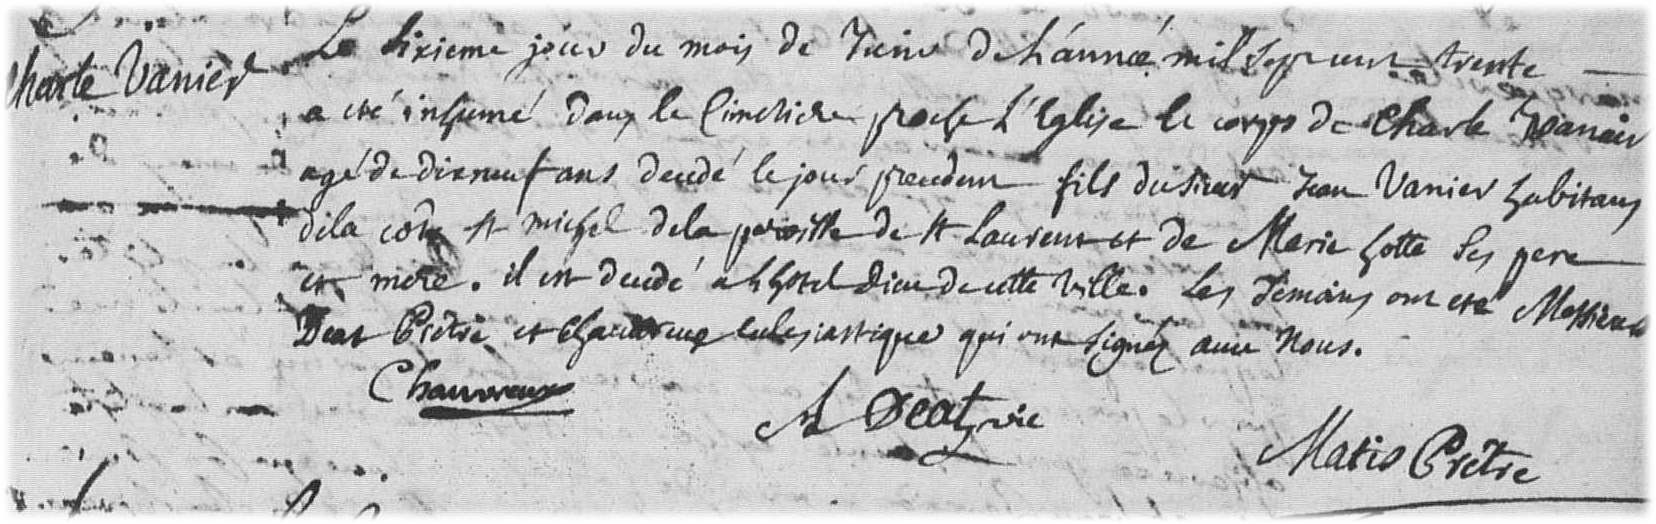 Charle Vanier
Le Sixieme jour du mois de Juin de L'année mil Sept cent trente
a eté inhumé dans le Cimetiere proche L'Eglise le corps de Charle Vanier
agé de dix neuf ans decedé le jour precedent fils du Sieur Jean Vanier habitant
de la cote St michel de la paroisse de St Laurent et de Marie hotte Ses pere
et mere. il est decedé a L'hotel Dieu de cette Ville. Les Temoins ont eté Messieurs
Deat Prêtre et Chauvreux eclesiastique qui ont Signéz avec Nous.
Chauvreux
A Deat vic
Matis Prêtre